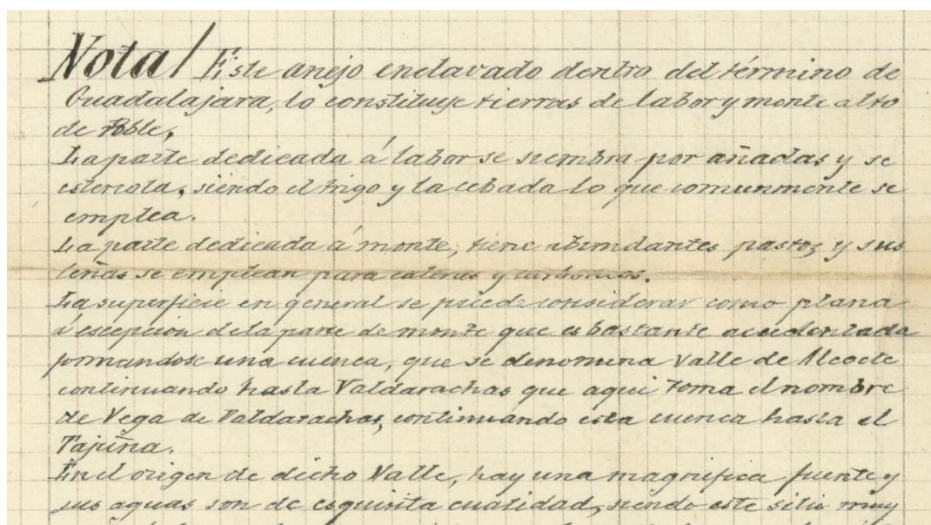 Nota/ Este anejo enclavado dentro del término de
Guadalajara, lo constituye tierras de labor y monte alto
de Roble,
La parte dedicada á labor se siembra por añadas y se
estercola, siendo el trigo y la cebada lo que comunmente se
emplea.
La parte dedicada á monte, tiene abundantes pastos, y sus
leñas se emplean para caleras y carboneos.
La superficie en general se puede considerar como plana
á escepcion de la parte de monte que es bastante accidentada
formandose una cuenca, que se denomina Valle de Alcocte
continuando hasta Valdarachas que aqui toma el nombre
de Vega de Valdarachas, continuando esta cuenca hasta el
Tajuña.
En el origen de dicho Valle, hay una magnifica fuente y
sus aguas son de esquisita cualidad, siendo este sitio muy